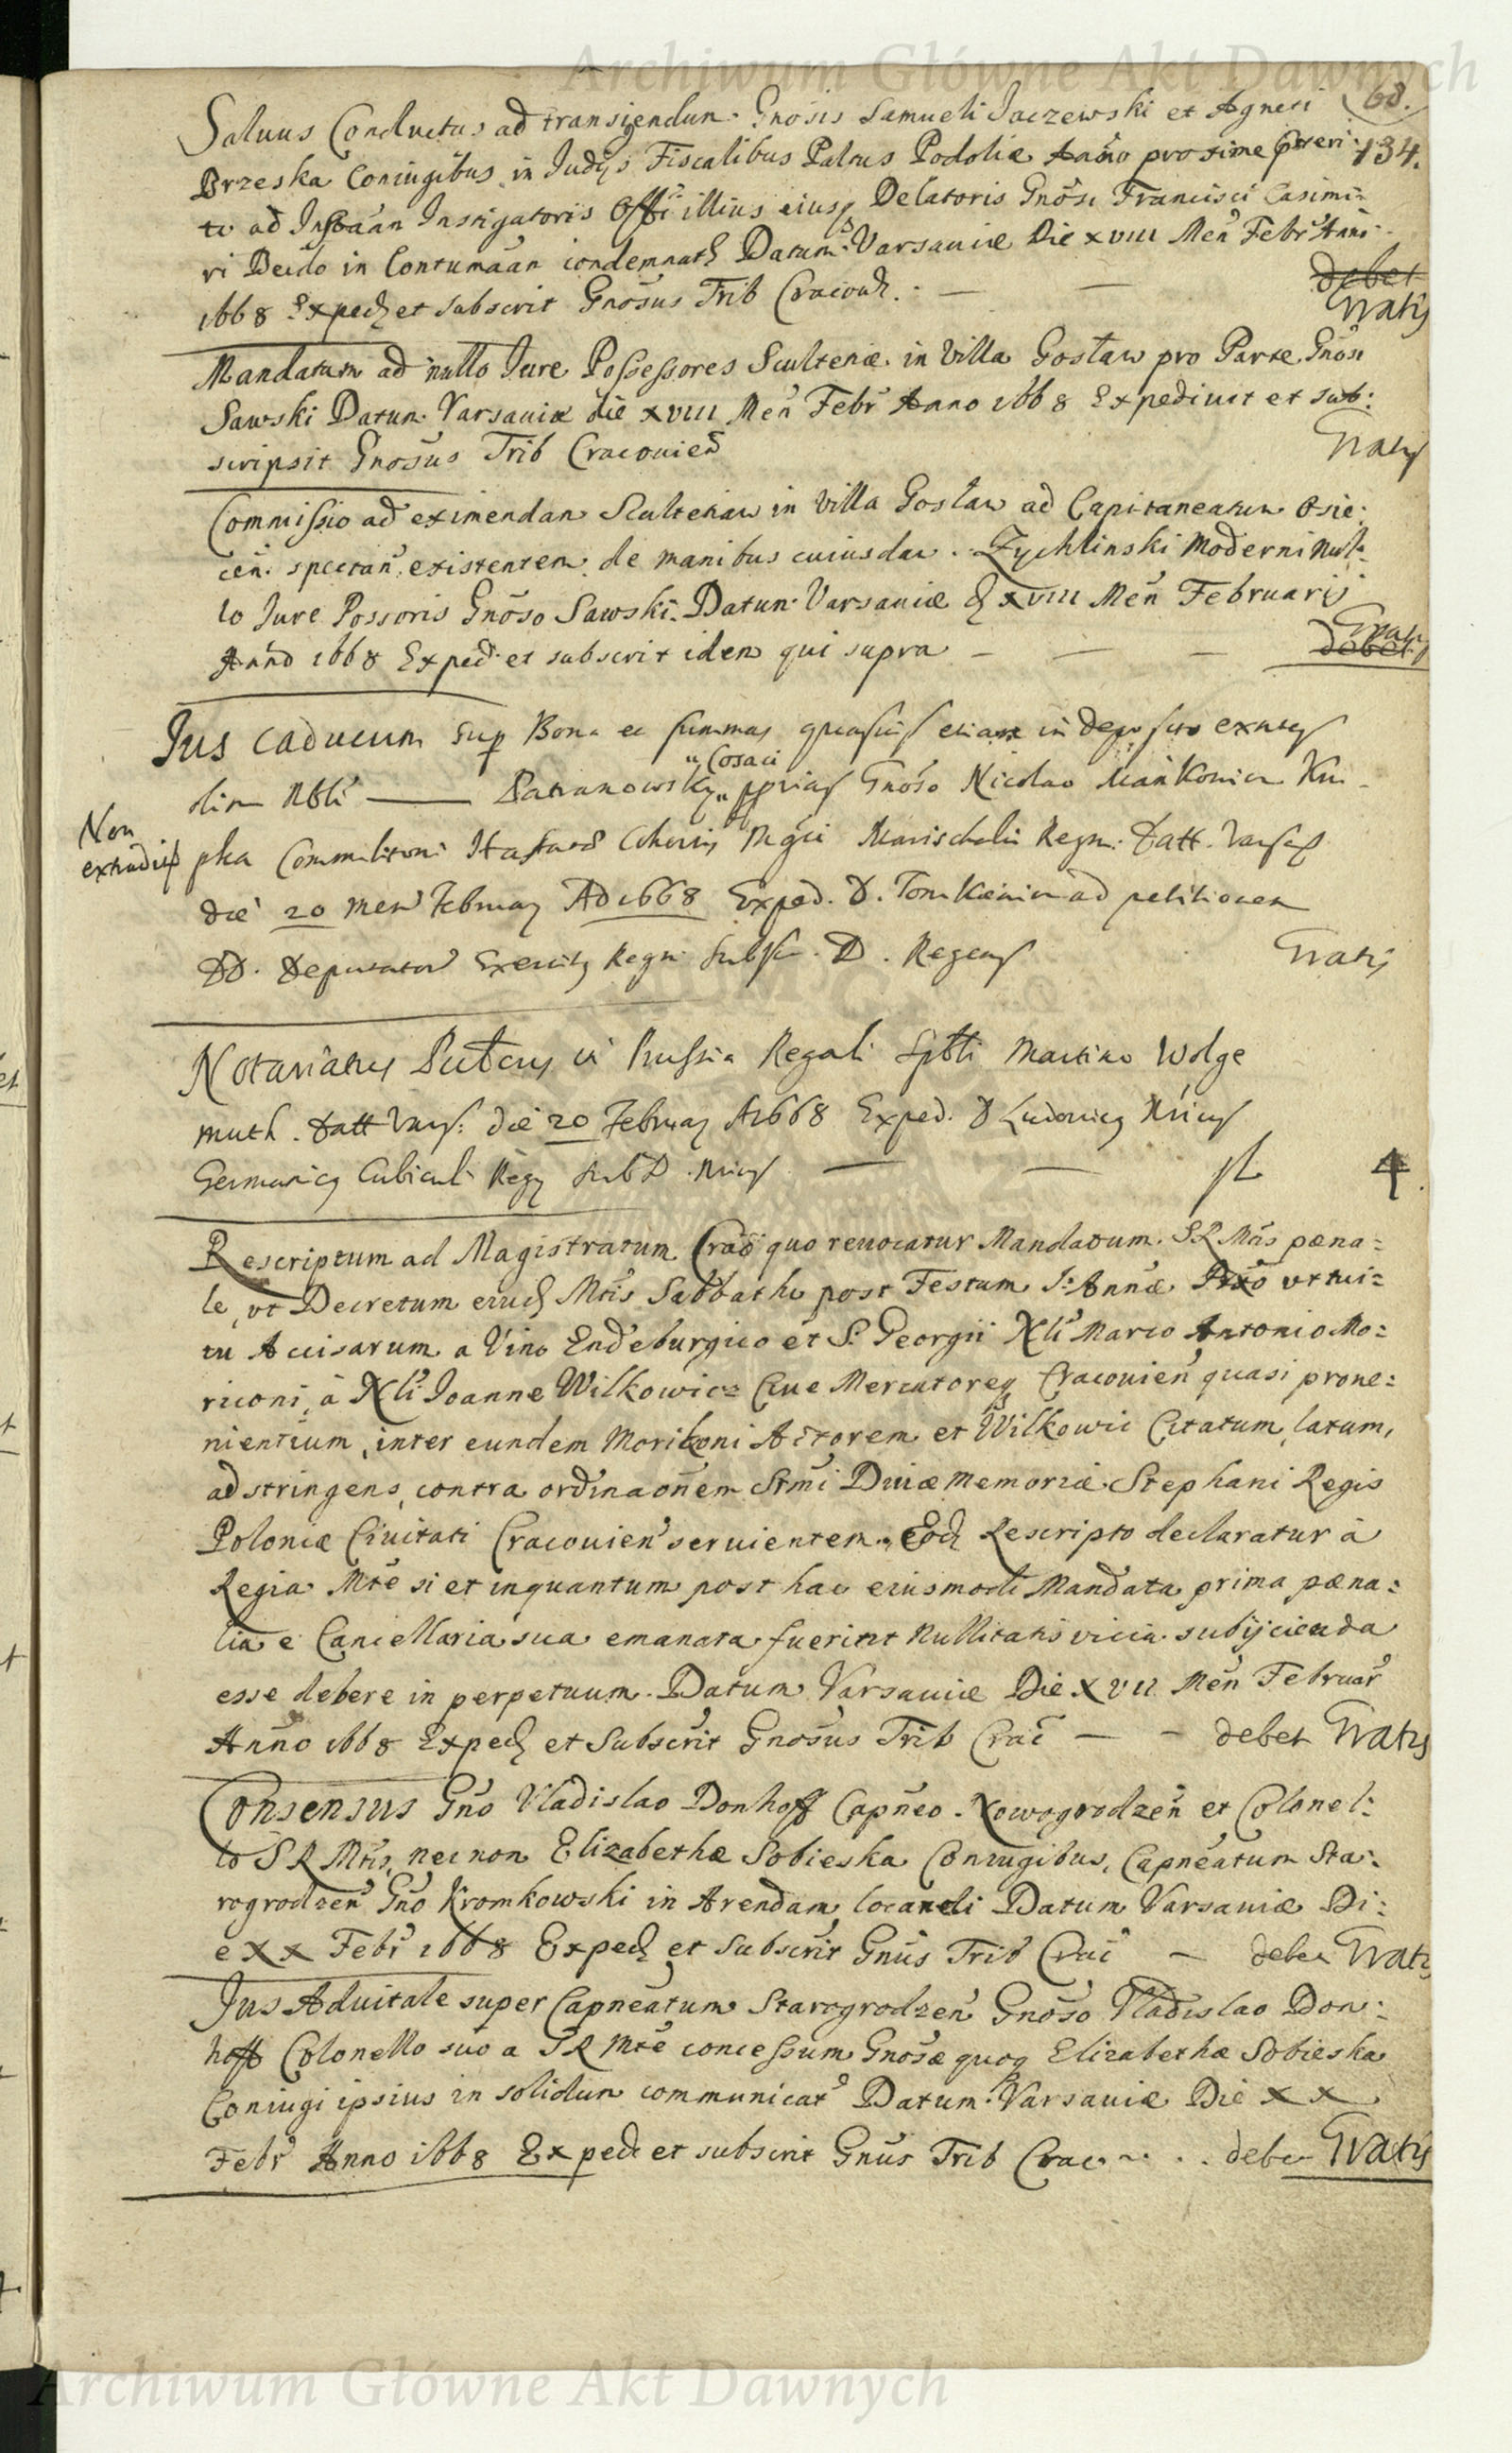 Archiwum Główne Akt Dawnych
68.
134.
Saluus Conductus ad transigendum Gnosis Samueli Jaczewski et Agneti
Brzeska Coniugibus in Judijs Fiscalibus Palnus Podoliæ Anno proxime præteri
to ad Instaan Instigatoris Offii illius eiusq Delatoris Gnosi Francisci Casimi=
ri Decio in Contumaan condemnatis Datum Varsauiæ Die xviii Men Febr Anni
1668 Exped et Subscrit Gnosus Trib Cracou. — — debet
Gratis
Mandatum ad nullo Jure Possessores Scultetiæ in Villa Gostaw pro Parte Gnosi
Sawski Datum Varsauiæ die xviii Men Febr Anno 1668 Expediuit et sub:
scripsit Gnosus Trib Cracouien Gratis
Commissio ad eximendam Scultetiam in Villa Gostaw ad Capitaneatum Osie:
cen. spectan existentem de manibus cuiusdam Zychlinski Moderni Nul=
lo Jure Possoris Gnoso Sawski Datum Varsauiæ d xviii Men Februarij
Anno 1668 Exped et subscrit idem qui supra — — — Gratis
debet
Jus caducum sup Bona et summas quasuis etiam in deposito existen
Cosaci
dim Nbli —— Baranowsky pprias Gnoso Nicolao Mankowicz Kru
Non
extraditum
pka Commilitoni Hastato Cohortis Mgci Marischalci Regni. Datt. Vars
die 20 men February AD 1668 Exped. D. Tomkiewicz ad petitionem
DD. Deputator Exercitg Regni Subsc. D. Regens Gratis
Notariatus Publicus in Prussia Regali Spbli Martino Wolge
muth. Datt Vars: die 20 February A1668 Exped. D Ludovicg Nrius
Germanicg Cubicul Regg Sub D. Nrius — — fl 4
Rescriptum ad Magistratum Crac quo reuocatur Mandatum SR Mtis pæna=
le, ut Decretum eiusd Mtis Sabbatho post Festum S. Annæ Prxo vrtui=
tu Accisarum a Vino Endeburgico et S. Georgii Nli Marco Antonio Mo=
riconi, à Nli Joanne Wilkowicz Ciue Mercatoreq Cracouien quasi proue=
nientium, inter eundem Moriconi Actorem et Wilkowic Citatum, latum,
adstringens, contra ordinaonem Stmi Diuæ Memoriæ Stephani Regis
Poloniæ Ciuitati Cracouien seruientem. Eod Rescripto declaratur à
Regia Mte si et inquantum post hac eiusmodi Mandata prima pæna=
lia e Cancellaria sua emanata fuerint Nullitatis vicia subijcienda
esse debere in perpetuum. Datum Varsauiæ Die xvii Men Februar
Anno 1668 Exped et Subscrit Gnosus Trib Crac — — debet Gratis
Consensus Gno Vladislao Donhoff Capneo Nowogrodzen et Colonel:
lo SR Mtis, necnon Elizabethæ Sobieska Coniugibus, Capneatum Sta:
rogrodzen Gno Kromkowski in Arendam locandi Datum Varsauiæ Di:
e xx Febr 1668 Exped et Subscrit Gnus Trib Crac — debet Gratis
Jus Aduitale super Capneatum Starogrodzen Gnoso Vladislao Don:
hoff Colonello suo a SR Mte concessum Gnosæ quoq Elizabethæ Sobieska
Coniugi ipsius in solidum communicat Datum Varsauiæ Die xx
Febr Anno 1668 Exped et subscrit Gnus Trib Crac . . debet Gratis
Archiwum Główne Akt Dawnych